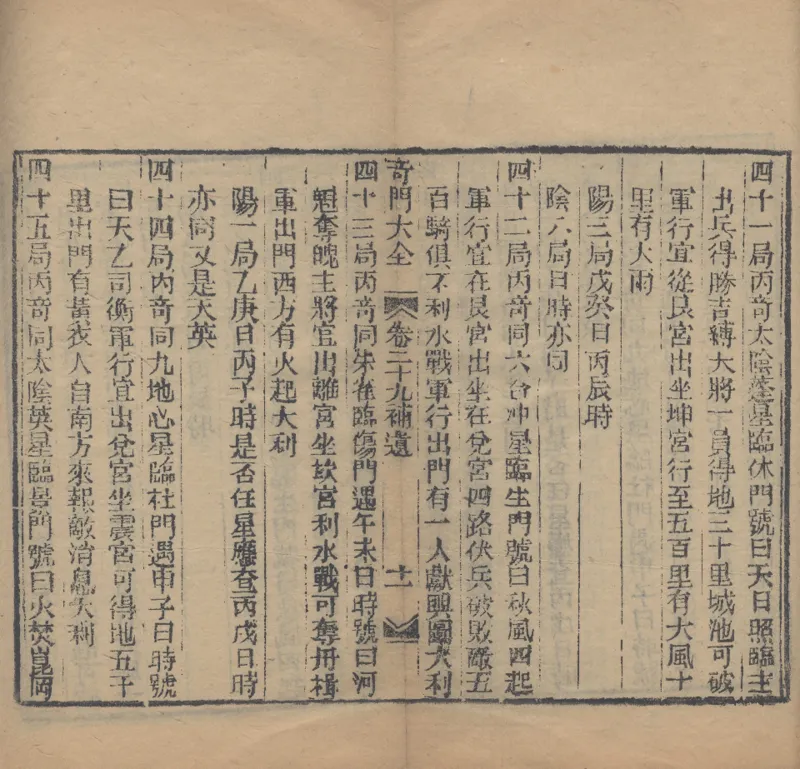 四十一局丙奇太陰蓬星臨休門號曰天日照臨主
出兵得勝吉縛大將一員得地三十里城池可破
軍行宜從艮宮出坐坤宮行至五百里有大風十
里有大雨
陽三局戊癸日丙辰時
陰六局日時亦同
四十二局丙奇同六合冲星臨生門號曰秋風四起
軍行宜在艮宮出坐在兌宮四路伏兵破敗敵五
百騎俱不利水戰軍行出門有一人獻輿圖大利
奇門大全 卷二十九補遺 十一
四十三局丙奇同朱雀臨傷門遇午未日時號曰河
魁奪魄主將宜出離宮坐坎宮利水戰可奪舟楫
軍出門西方有火起大利
陽一局乙庚日丙子時是否任星應查丙戌日時
亦同又是天英
四十四局丙奇同九地心星臨杜門遇申子日時號
曰天乙司衡軍行宜出兌宮坐震宮可得地五千
里出門有黃衣人自南方來報敵消息大利
四十五局丙奇同太陰英星臨景門號曰火焚崑岡